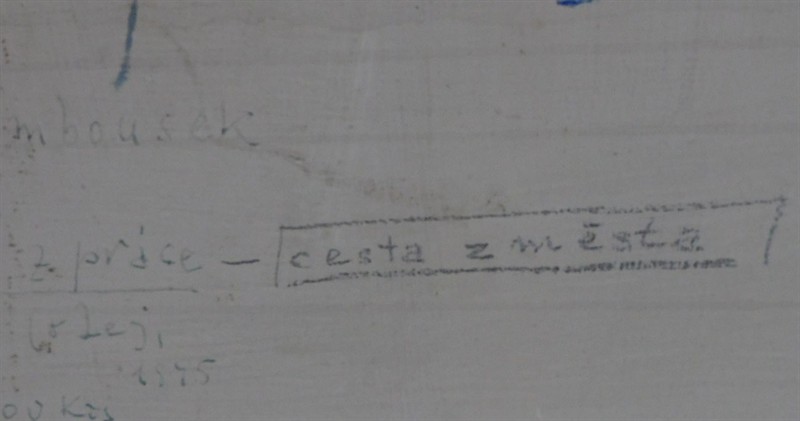 mbousek
z práce - cesta z města
(olej,
1975
00 Kčs